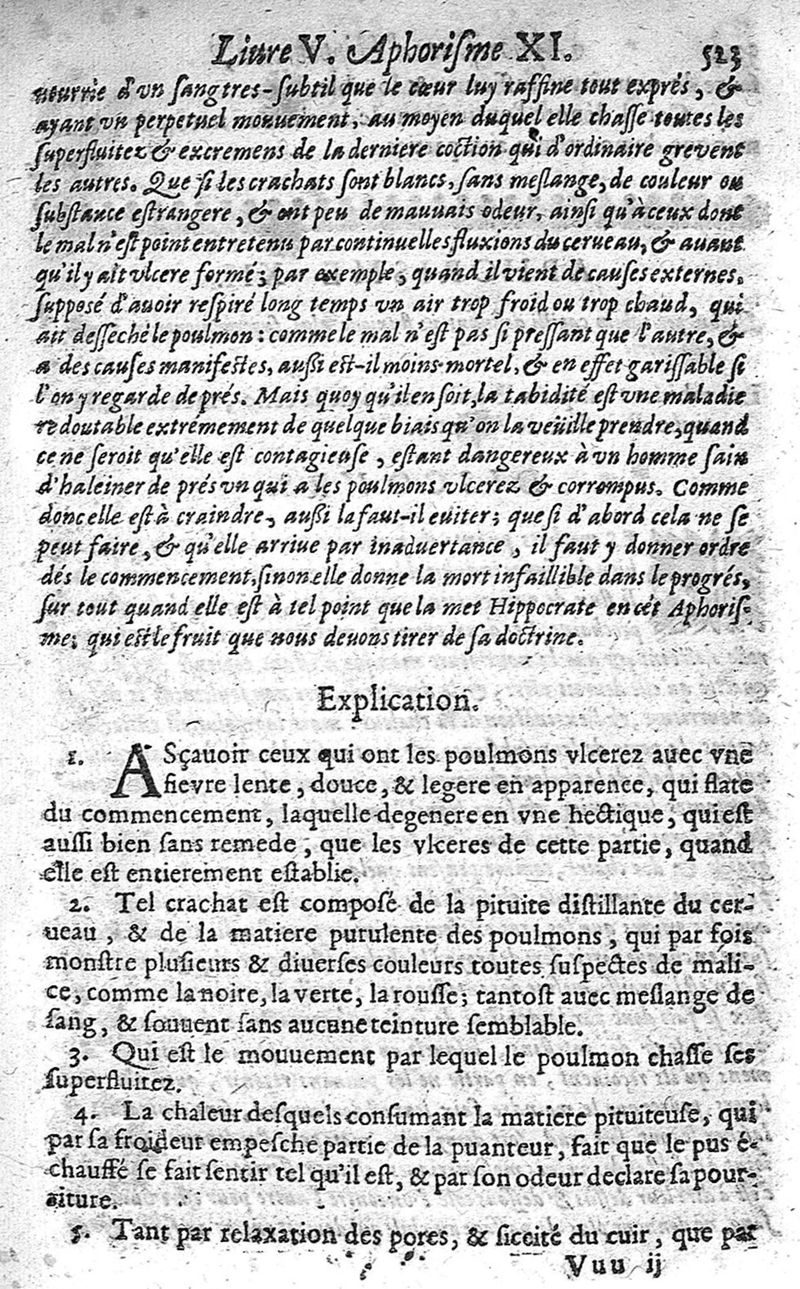 Liure V. Aphorisme XI. 523
nourrie d'vn sang tres-subtil que le cœur luy raffine tout exprés, &
ayant vn perpetuel mouuement, au moyen duquel elle chasse toutes les
superfluitez & excremens de la derniere coction qui d'ordinaire greuent
les autres. Que si les crachats sont blancs, sans meslange, de couleur ou
substance estrangere, & ont peu de mauuais odeur, ainsi qu'à ceux dont
le mal n'est point entretenu par continuelles fluxions du cerueau, & auant
qu'il y ait vlcere formé; par exemple, quand il vient de causes externes.
supposé d'auoir respiré long temps vn air trop froid ou trop chaud, qui
ait desseché le poulmon : comme le mal n'est pas si pressant que l'autre, &
a des causes manifestes, aussi est-il moins mortel, & en effet garissable si
l'on y regarde de prés. Mais quoy qu'il en soit, la tabidité est vne maladie
redoutable extremement de quelque biais qu'on la veüille prendre, quand
ce ne seroit qu'elle est contagieuse, estant dangereux à vn homme sain
d'haleiner de prés vn qui a les poulmons vlcerez & corrompus. Comme
donc elle est à craindre, aussi la faut-il euiter; que si d'abord cela ne se
peut faire, & qu'elle arriue par inaduertance, il faut y donner ordre
dés le commencement, sinon elle donne la mort infaillible dans le progrés,
sur tout quand elle est à tel point que la met Hippocrate en cét Aphoris-
me; qui est le fruit que nous deuons tirer de sa doctrine.
Explication.
1. A Sçauoir ceux qui ont les poulmons vlcerez auec vne
fievre lente, douce, & legere en apparence, qui flate
du commencement, laquelle degenere en vne hectique, qui est
aussi bien sans remede, que les vlceres de cette partie, quand
elle est entierement establie.
2. Tel crachat est composé de la pituite distillante du cer-
ueau, & de la matiere purulente des poulmons, qui par fois
monstre plusieurs & diuerses couleurs toutes suspectes de mali-
ce, comme la noire, la verte, la rousse; tantost auec meslange de
sang, & souuent sans aucune teinture semblable.
3. Qui est le mouuement par lequel le poulmon chasse ses
superfluitez.
4. La chaleur desquels consumant la matiere pituiteuse, qui
par sa froideur empesche partie de la puanteur, fait que le pus é-
chauffé se fait sentir tel qu'il est, & par son odeur declare sa pour-
riture.
5. Tant par relaxation des pores, & siccité du cuir, que par
Vuu ij